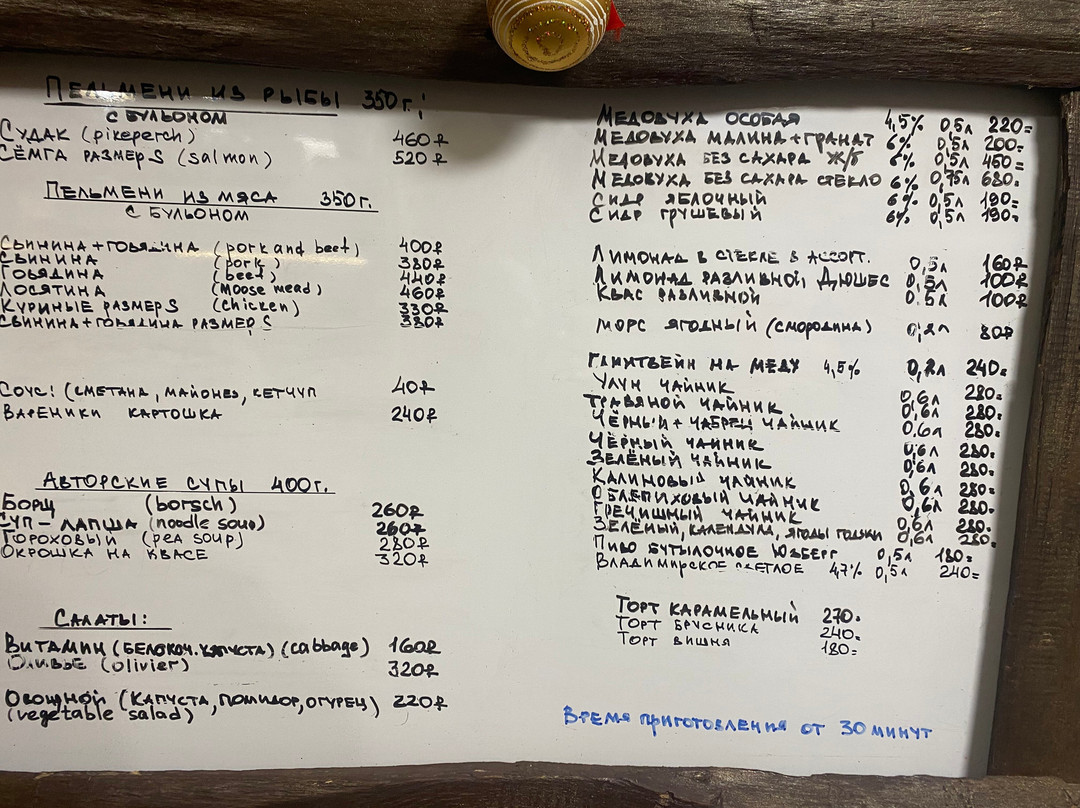 Пельмени из рыбы 350г.;
с бульоном
Судак (pikeperch) 460₽
Сёмга размер S (salmon) 520₽
Пельмени из мяса 350г.
с бульоном
Свинина+говядина (pork and beef) 400₽
Свинина (pork) 380₽
Говядина (beef) 440₽
Лосятина (moose mead) 460₽
Куриные размер S (chicken) 330₽
Свинина+говядина размер S 380₽
Соус! (сметана, майонез, кетчуп 40₽
Вареники картошка 240₽
Авторские супы 400г.
Борщ (borsch) 260₽
Суп-лапша (noodle soup) 260₽
Гороховый (pea soup) 280₽
Окрошка на квасе 320₽
Салаты:
Витамин (белокоч. капуста) (cabbage) 160₽
Оливье (olivier) 320₽
Овощной (капуста, помидор, огурец) 220₽
(vegetable salad)
Медовуха особая 4,5% 0,5л 220=
Медовуха малина+гранат 6% 0,5л 200=
Медовуха без сахара ж/б 6% 0,5л 450=
Медовуха без сахара стекло 6% 0,75л 680=
Сидр яблочный 6% 0,5л 190=
Сидр грушевый 6% 0,5л 190=
Лимонад в стекле в ассорт. 0,5л 160₽
Лимонад разливной, Дюшес 0,5л 100₽
Квас разливной 0.5л 100₽
Морс ягодный (смородина) 80₽
Глинтвейн на меду 4,5% 0,2л 240=
Улун чайник 0,6л 280=
Травяной чайник 0,6л 280=
Чёрный+чабрец чайник 0,6л 280=
Чёрный чайник 0,6л 280=
Зелёный чайник 0,6л 280=
Калиновый чайник 0,6л 280=
Облепиховый чайник 0,6л 280=
Гречишный чайник 0,6л 280=
Зелёный, календула, ягоды 0,6л 280=
Пиво бутылочное 0,5л 180=
Владимирское светлое 4,7% 0,5л 240=
Торт карамельный 270=
Торт брусника 240=
Торт вишня 180=
Время приготовления от 30 минут